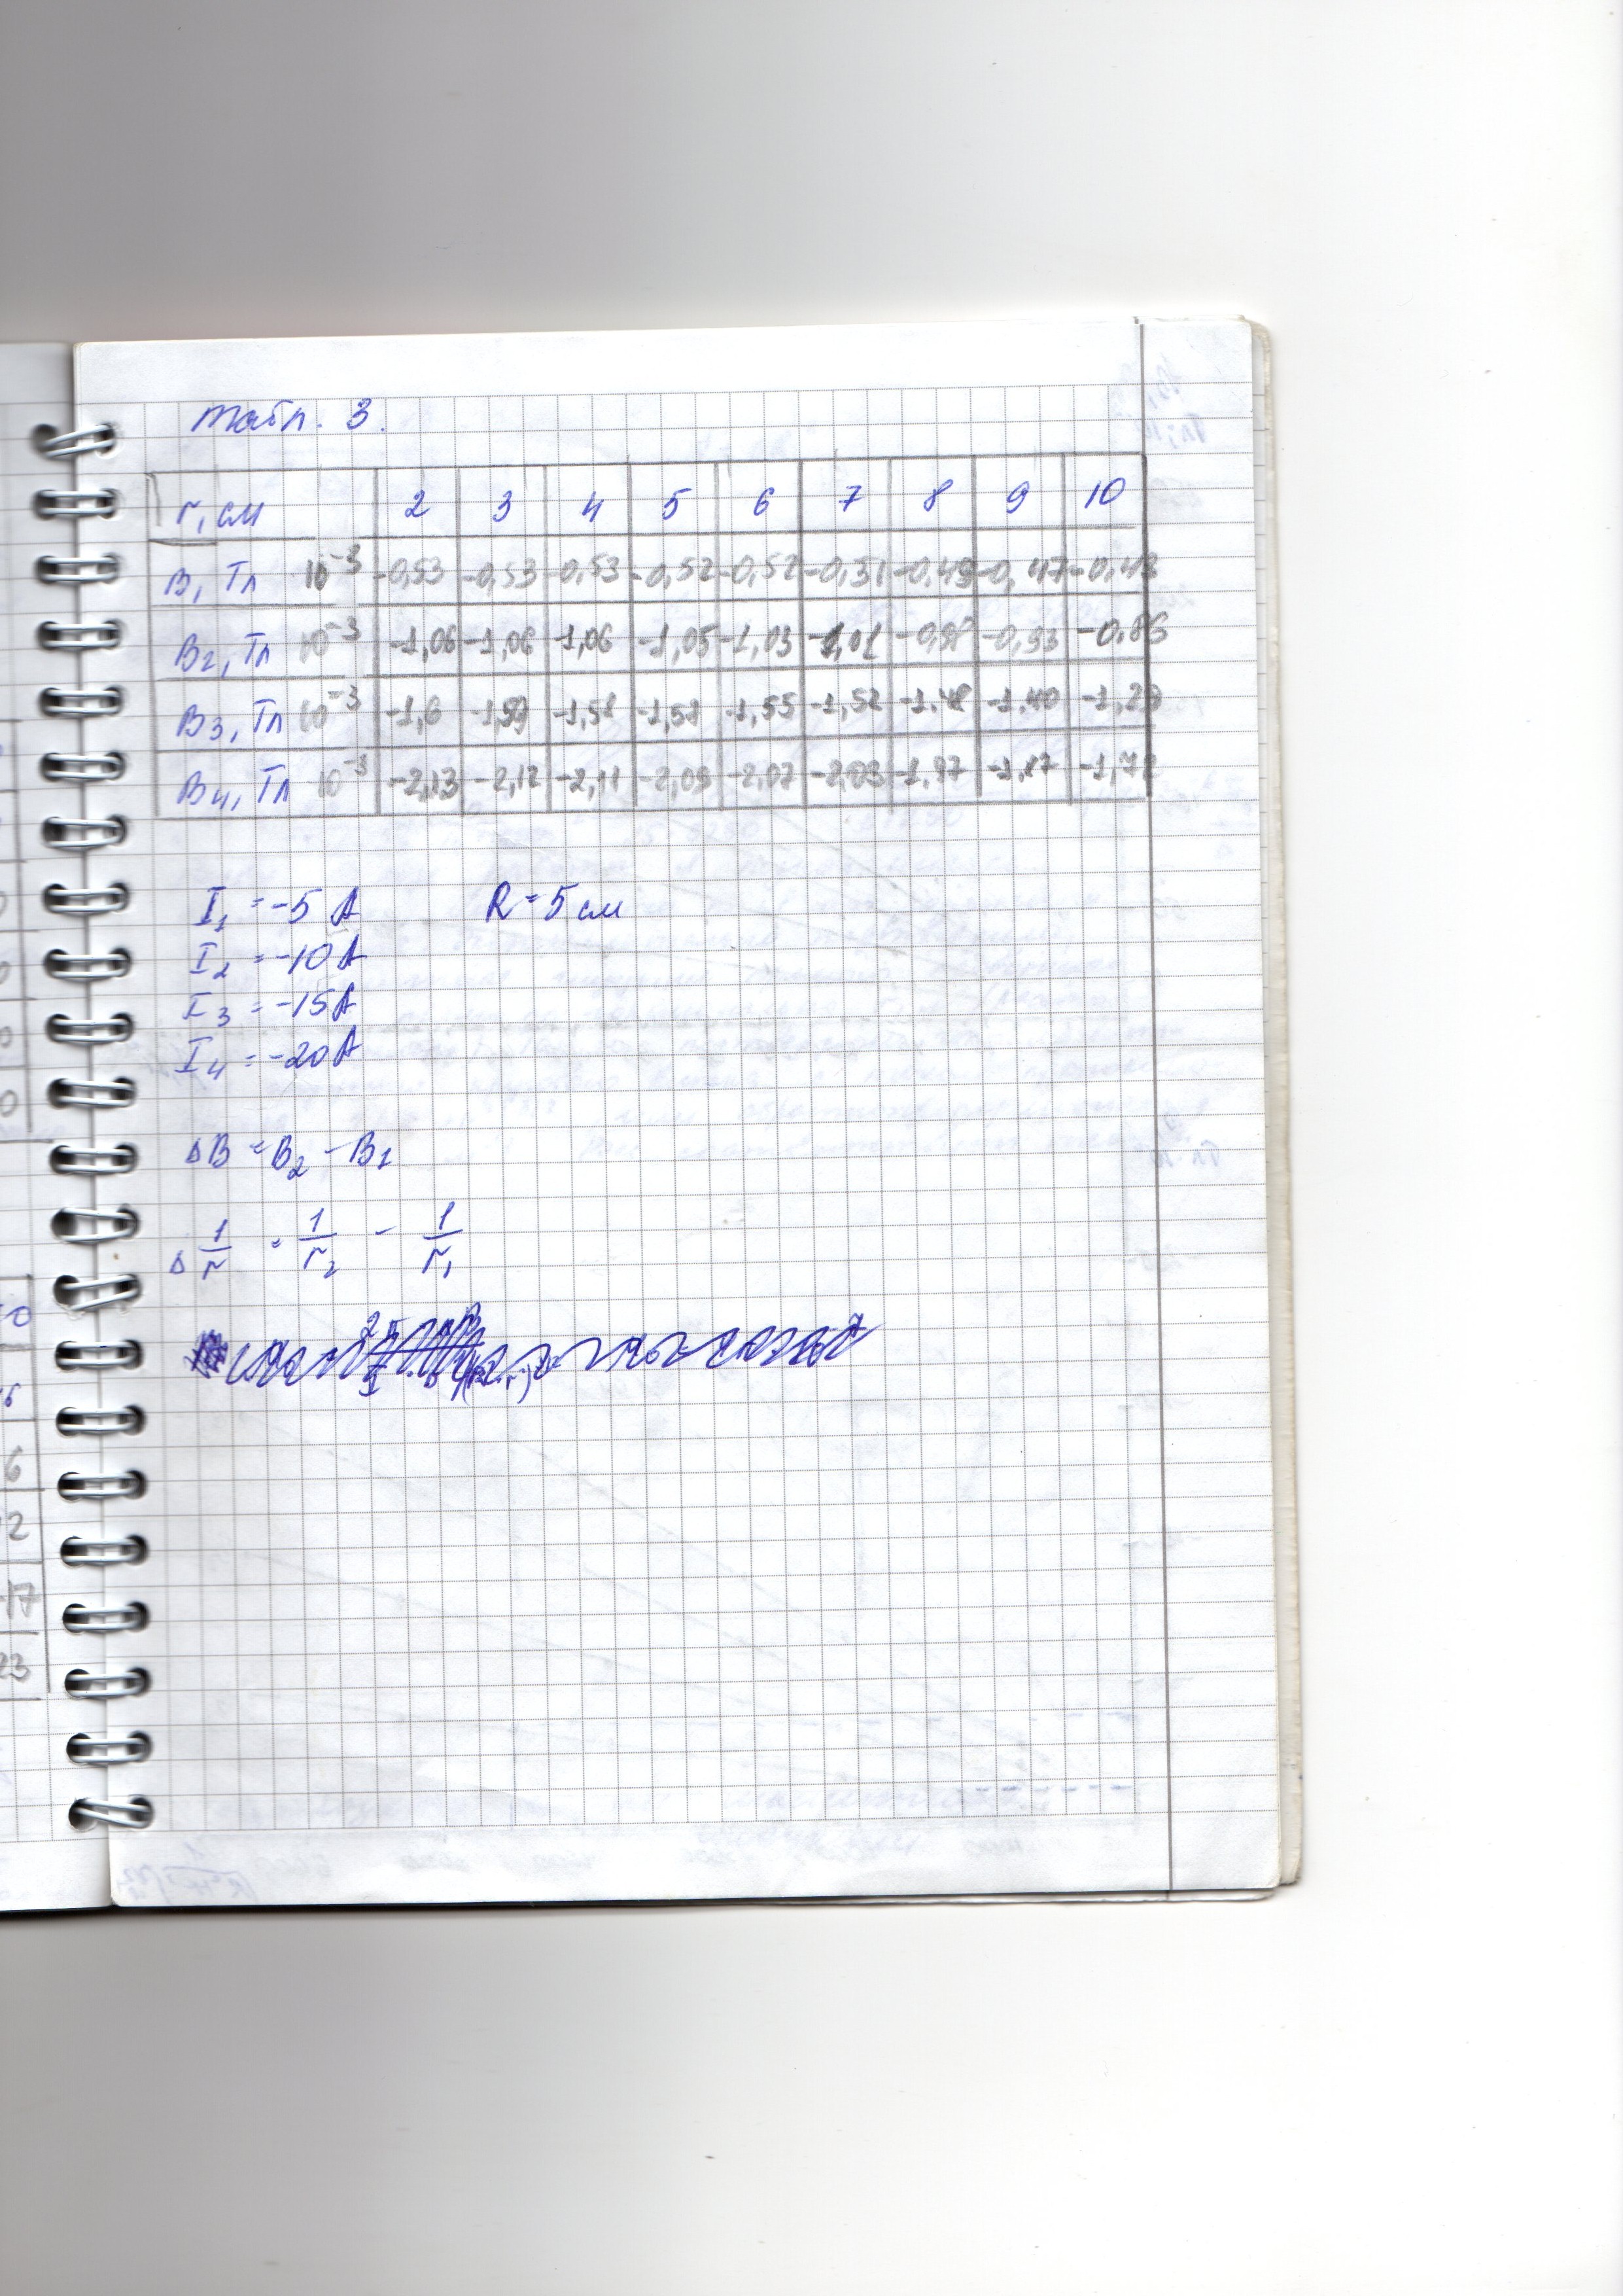 Табл. 3.
r, см 2 3 4 5 6 7 8 9 10
B, Тл 10⁻³ -0,53 -0,53 -0,53 -0,52 -0,52 -0,51 -0,49 -0,47 -0,43
B₂, Тл 10⁻³ -1,06 -1,06 -1,06 -1,05 -1,03 -1,01 -0,98 -0,93 -0.86
B₃, Тл 10⁻³ -1,6 -1,59 -1,58 -1,58 -1,55 -1,52 -1.48 -1.40 -1,29
B₄, Тл 10⁻³ -2,13 -2,12 -2,11 -2,09 -2,07 -2,03 -1,97 -1,87
I₁ = -5 A R = 5 см
I₂ = -10 A
I₃ = -15 A
I₄ = -20 A
ΔB = B₂ - B₁
Δ 1/r = 1/r₂ - 1/r₁